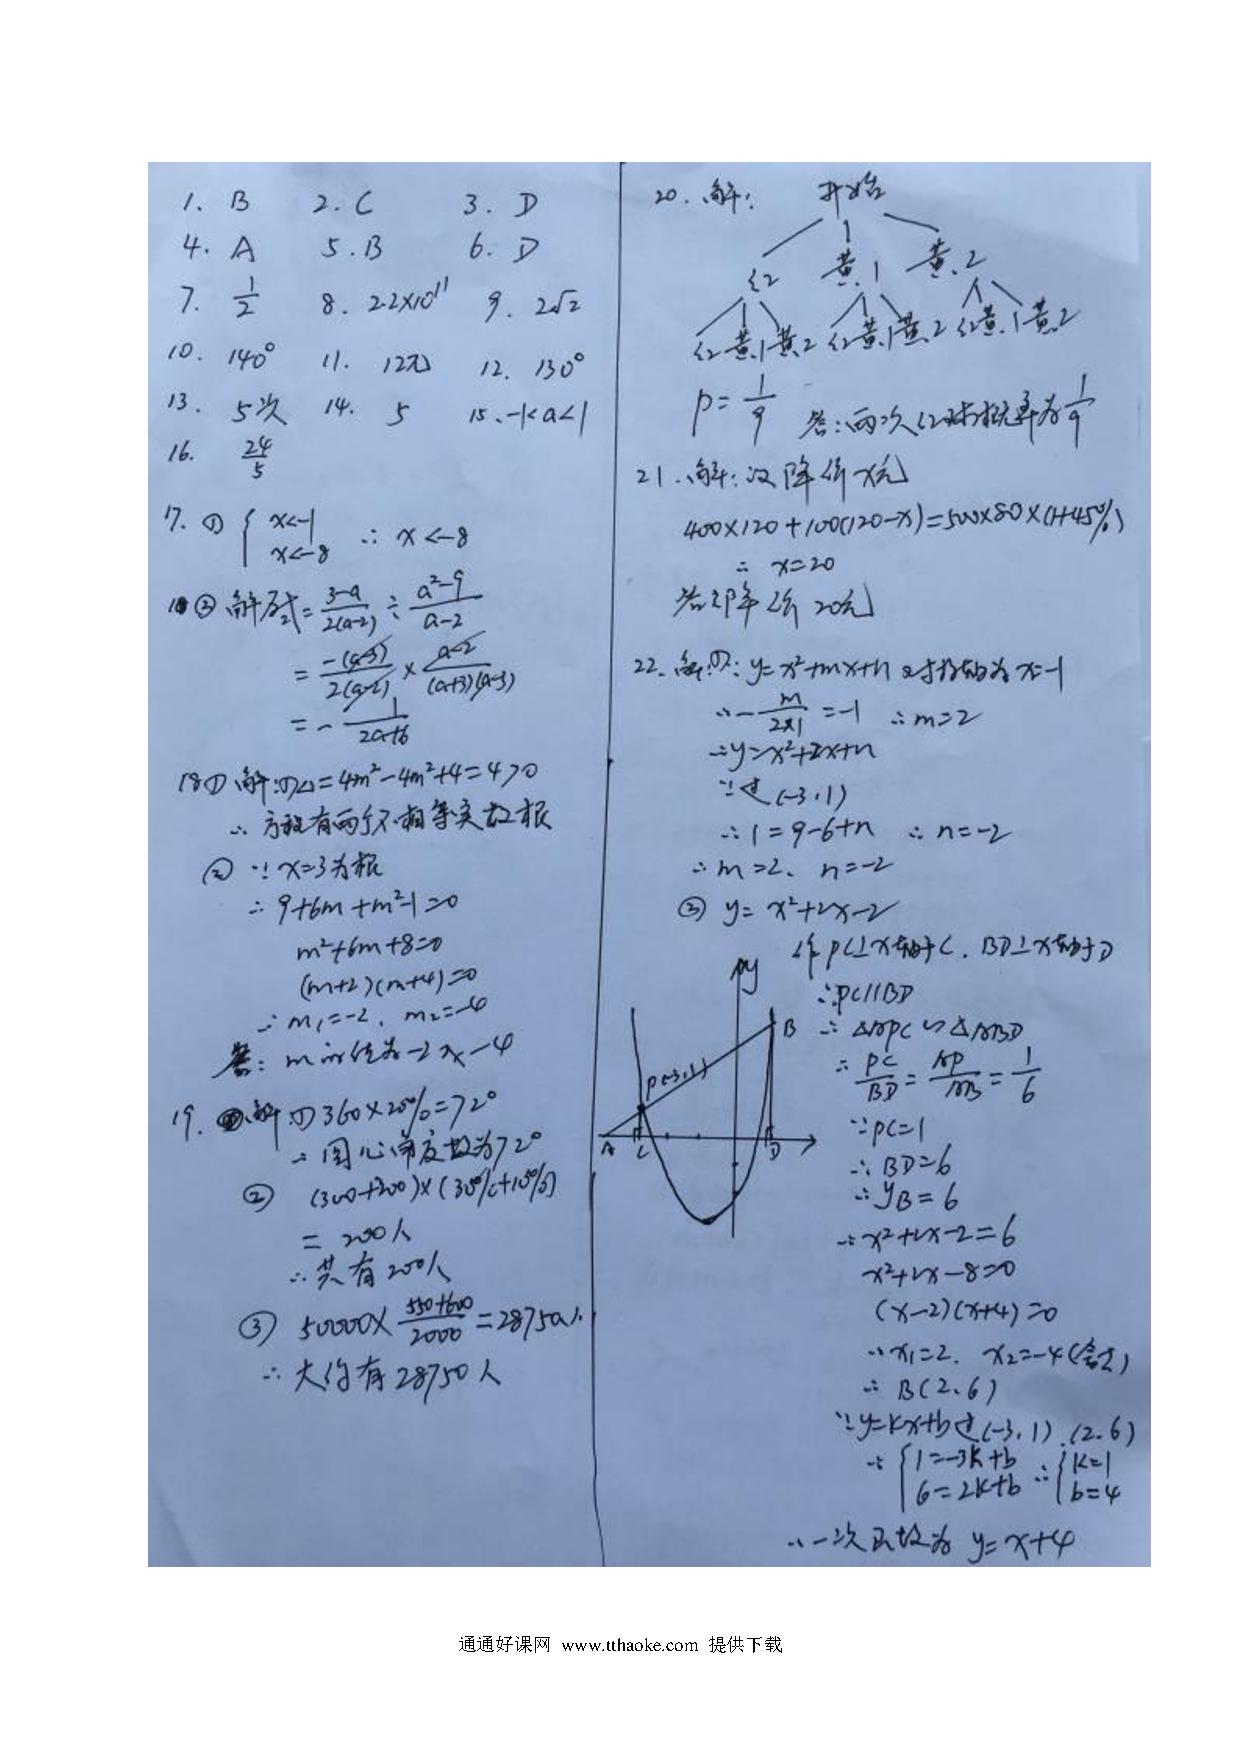 1. B 2. C 3. D
4. A 5. B 6. D
7. 1/2 8. 2.2×10¹¹ 9. 2√2
10. 140° 11. 12π 12. 130°
13. 5次 14. 5 15. -1<a<1
16. 24/5
17. ① { x<-1 x<-8 ∴ x<-8
② 解:原式= (3-a)/(2(a-2)) ÷ (a²-9)/(a-2)
= -(a-3)/(2(a-2)) × (a-2)/((a+3)(a-3))
= - 1/(2a+6)
18① 解:①△=4m²-4m²+4=4>0
∴ 方程有两个不相等实数根
② ∵ x=3为根
∴ 9+6m+m²-1=0
m²+6m+8=0
(m+2)(m+4)=0
∴ m₁=-2, m₂=-4
答: m的值为-2或-4
19. 解:①360×20%=72°
∴ 圆心角度数为72°
② (300+200)×(30%+10%)
= 200人
∴ 共有200人
③ 50000× (550+600)/2000 =28750人
∴ 大约有28750人
20. 解: 开始
红 黄1 黄2
红 黄1 黄2 红 黄1 黄2 红 黄1 黄2
P= 1/9 答:两次红球概率为1/9
21. 解:设降价x元
400×120+100(120-x)=500×80×(1+45%)
∴ x=20
答:降价20元
22. 解:①:y=x²+mx+n 对称轴为x=-1
∴- m/(2×1) =-1 ∴m=2
∴y=x²+2x+n
∵过(-3,1)
∴1=9-6+n ∴n=-2
∴m=2、n=-2
② y=x²+2x-2
作PC⊥x轴于C, BD⊥x轴于D
∴PC//BD
∴△APC∽△ABD
∴ PC/BD = AP/AB = 1/6
∵PC=1
∴BD=6
∴yB=6
∴x²+2x-2=6
x²+2x-8=0
(x-2)(x+4)=0
∴x₁=2, x₂=-4(舍去)
∴ B(2,6)
∵y=kx+b过(-3,1),(2,6)
∴ { 1=-3k+b 6=2k+b ∴ { k=1 b=4
∴一次函数为 y=x+4
y
B
P(-3,1)
A C D
通通好课网 www.tthaoke.com 提供下载